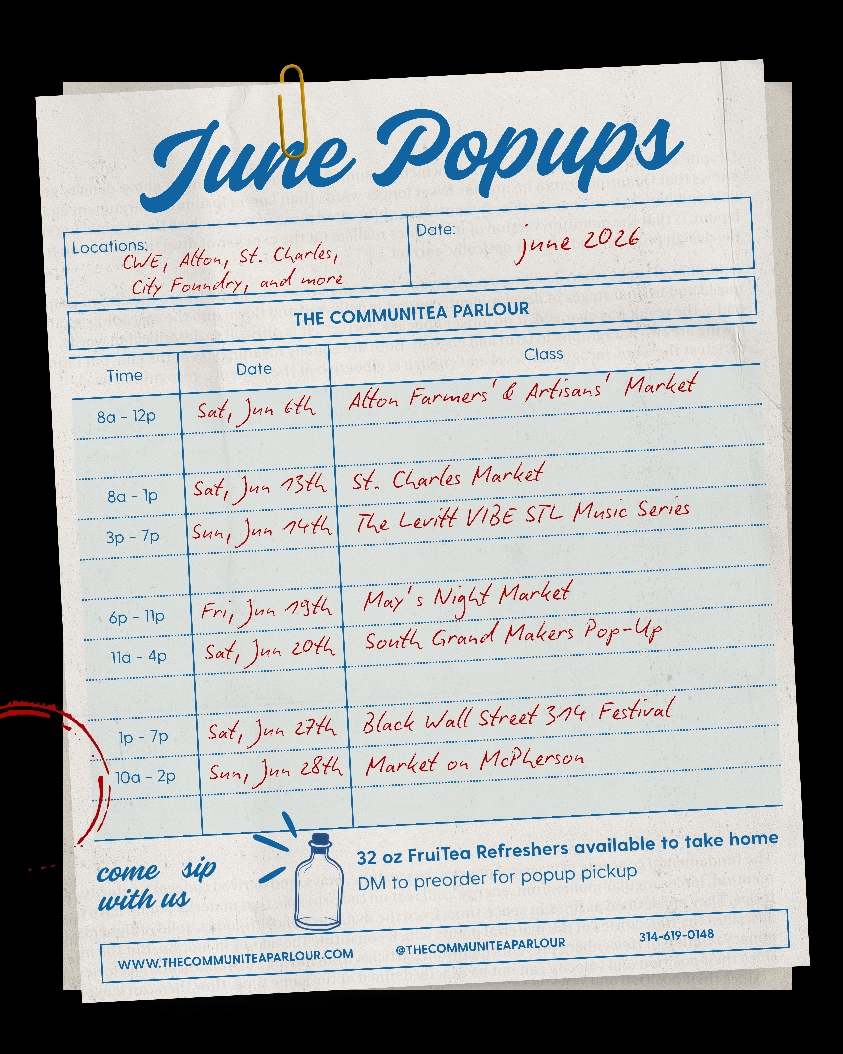 June Popups
Locations:
CWE, Alton, St. Charles,
City Foundry, and more
Date:
june 2026
THE COMMUNITEA PARLOUR
Time Date Class
8a - 12p Sat, Jun 6th Alton Farmers' & Artisans' Market
8a - 1p Sat, Jun 13th St. Charles Market
3p - 7p Sun, Jun 14th The Levitt VIBE STL Music Series
6p - 11p Fri, Jun 19th May's Night Market
11a - 4p Sat, Jun 20th South Grand Makers Pop-Up
1p - 7p Sat, Jun 27th Black Wall Street 314 Festival
10a - 2p Sun, Jun 28th Market on McPherson
come sip
with us
32 oz FruiTea Refreshers available to take home
DM to preorder for popup pickup
WWW.THECOMMUNITEAPARLOUR.COM @THECOMMUNITEAPARLOUR 314-619-0148